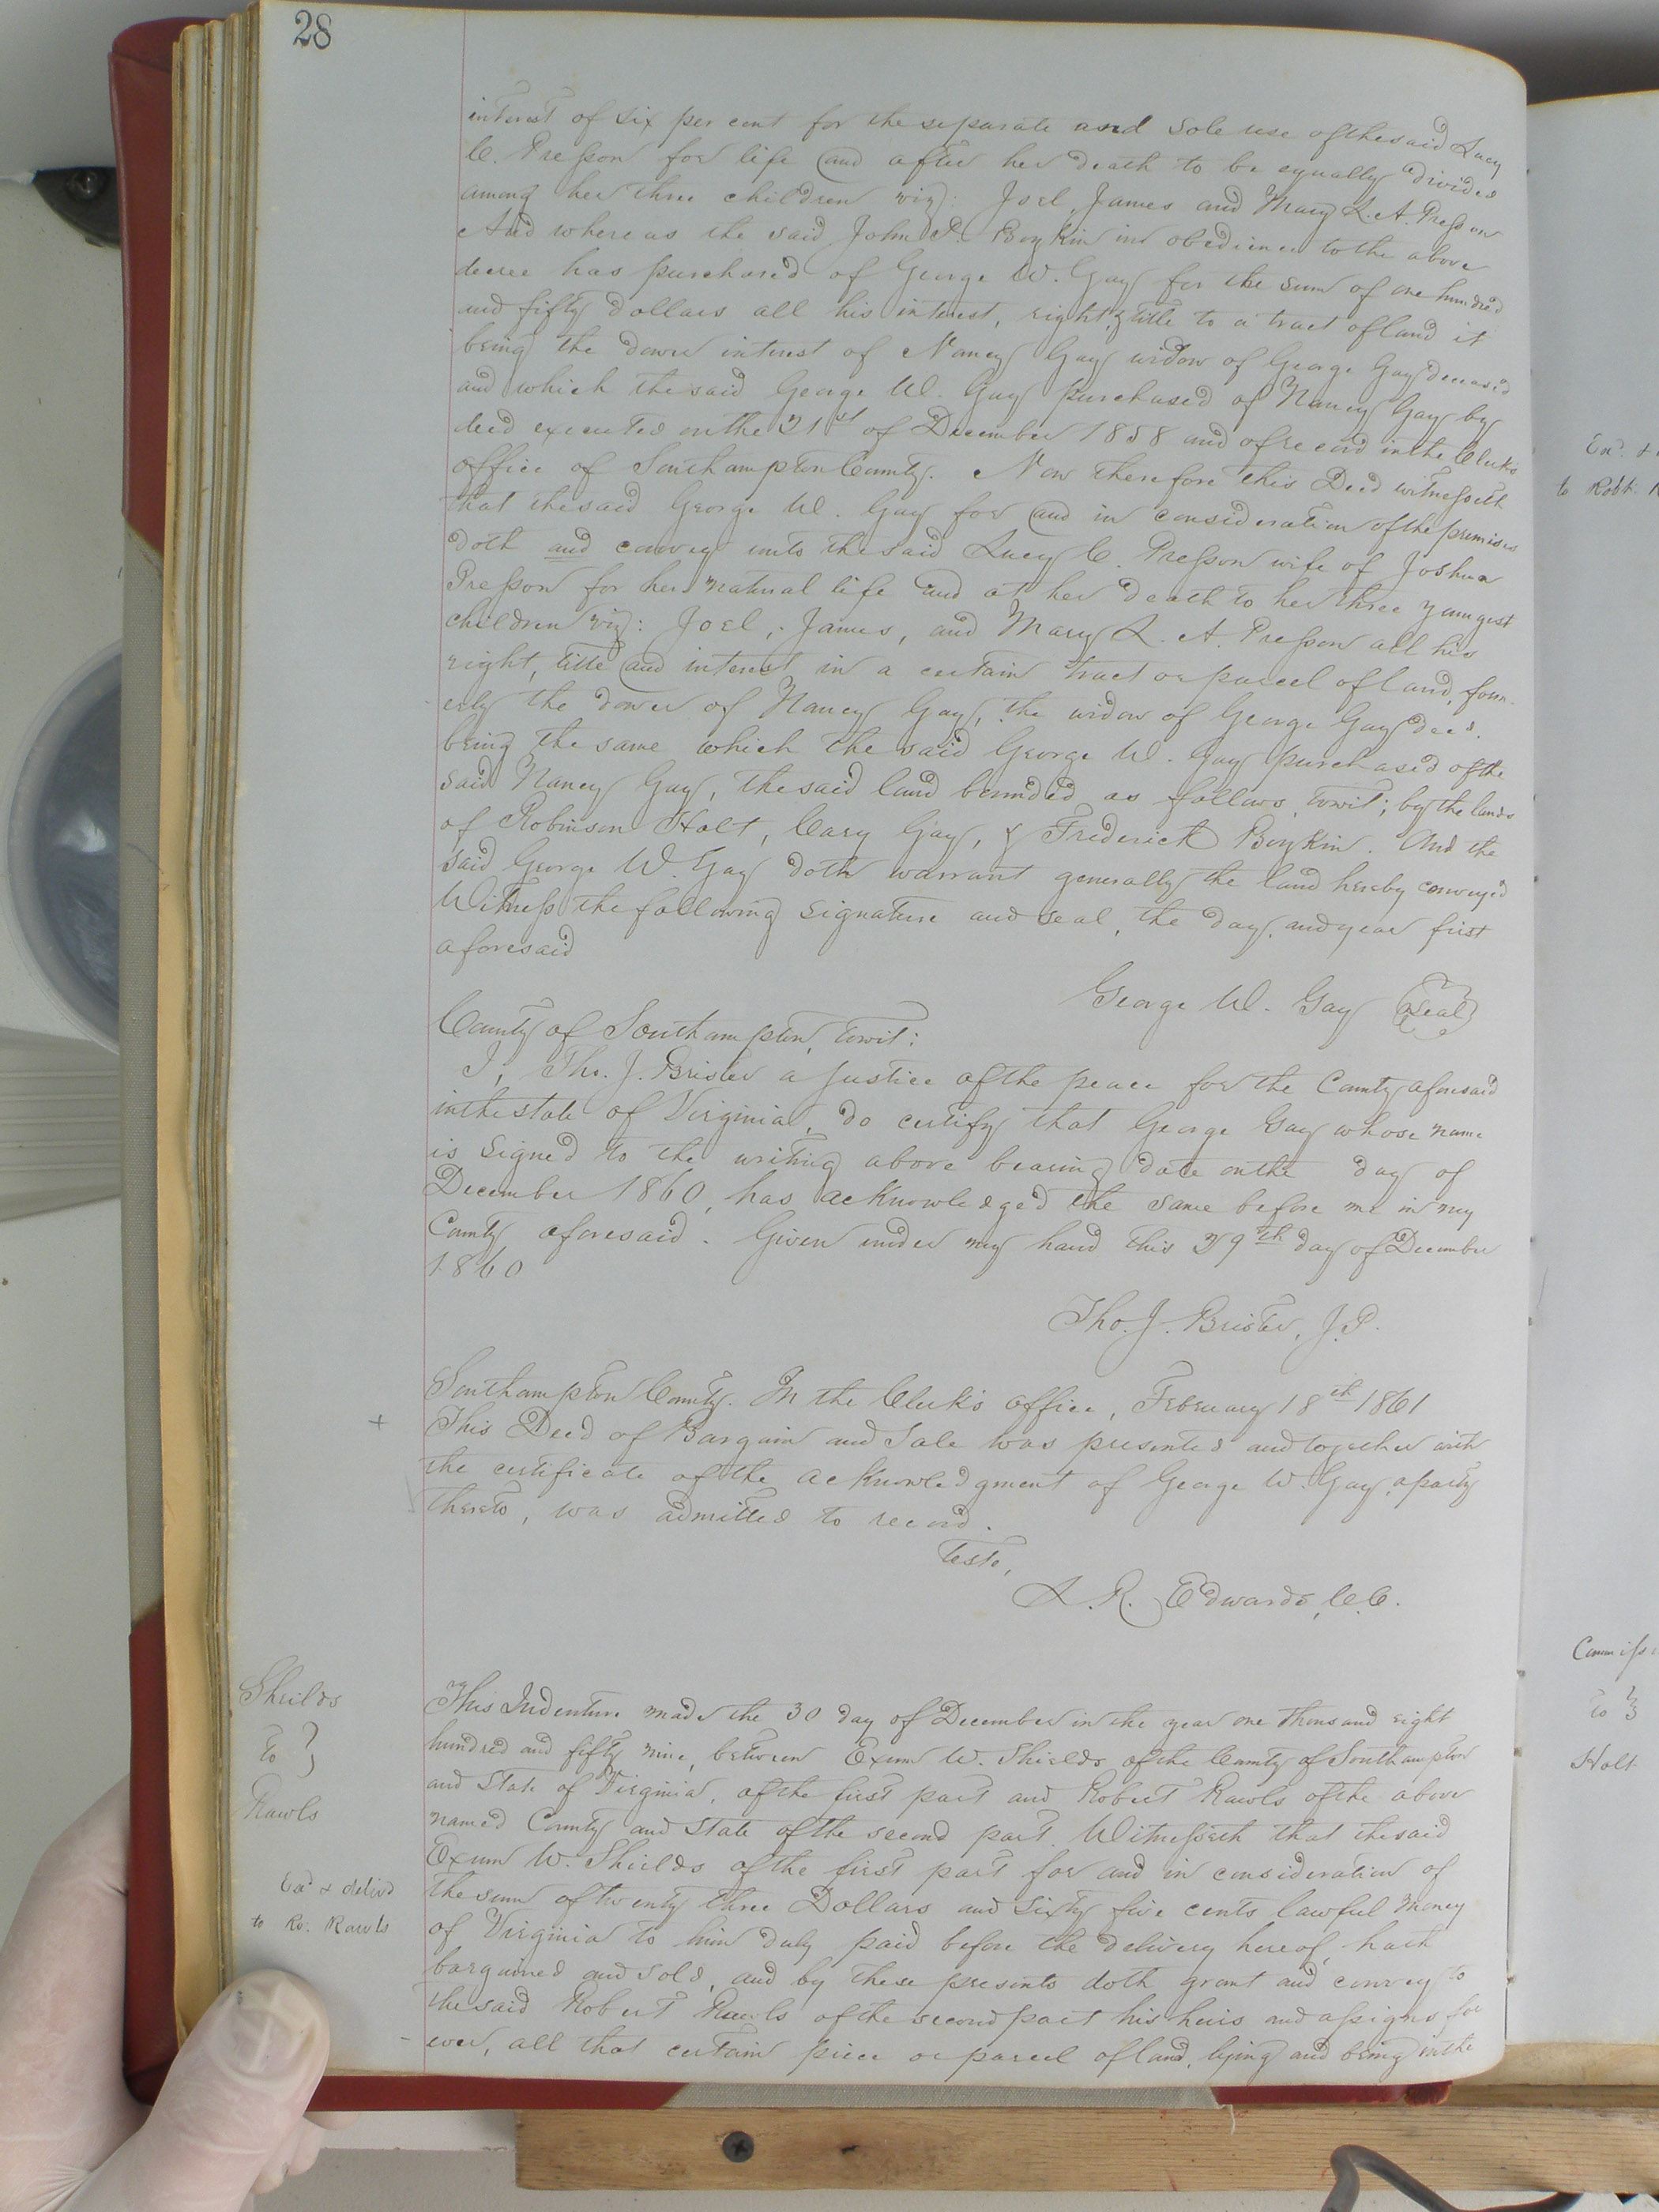 28
interest of six per cent for the separate and sole use of the said Lucy
C. Presson for life and after her death to be equally divided
among her three children viz: Joel, James and Mary L. A. Presson
And whereas the said John P. Boykin in obedience to the above
decree has purchased of George W. Gay for the sum of one hundred
and fifty dollars all his interest, right, & title to a tract of land it
being the dower interest of Nancy Gay widow of George Gay deceased
and which the said George W. Gay purchased of Nancy Gay by
deed executed on the 21st of December 1858 and of record in the Clerk's
office of Southampton County. Now therefore this Deed witnesseth
that the said George W. Gay for and in consideration of the premises
doth and convey unto the said Lucy C. Presson wife of Joshua
Presson for her natural life and at her death to her three youngest
children viz: Joel, James, and Mary L. A. Presson all his
right, title and interest in a certain tract or parcel of land, form-
erly the dower of Nancy Gay, the widow of George Gay decd.
being the same which the said George W. Gay purchased of the
said Nancy Gay, the said land bounded as follows, towit; by the lands
of Robinson Holt, Cary Gay, & Frederick Boykin. And the
said George W. Gay doth warrant generally the land hereby conveyed
Witness the following signature and seal, the day, and year first
aforesaid
George W. Gay (Seal)
County of Southampton, towit:
I, Tho. J. Brister a Justice of the peace for the County aforesaid
in the state of Virginia, do certify that George Gay whose name
is signed to the writing above bearing date on the day of
December 1860, has acknowledged the same before me in my
County aforesaid. Given under my hand this 29th day of December
1860
Tho. J. Brister, J.P.
Southampton County. In the Clerk's office, February 18th 1861
+ This Deed of Bargain and Sale was presented and together with
the certificate of the acknowledgment of George W. Gay, a party
thereto, was admitted to record.
Teste,
L. R. Edwards, C.C.
Sheilds
to }
Rawls
Exd & delivd
to Ro. Rawls
This Indenture made the 30 day of December in the year one thousand eight
hundred and fifty nine, between Exum W. Shields of the County of Southampton
and State of Virginia, of the first part and Robert Rawls of the above
named County and State of the second part. Witnesseth that the said
Exum W. Shields of the first part for and in consideration of
the sum of twenty three Dollars and sixty five cents lawful money
of Virginia to him duly paid before the delivery hereof, hath
bargained and sold, and by these presents doth grant and convey to
the said Robert Rawls of the second part his heirs and assigns for
ever, all that certain piece or parcel of land, lying and being in the
to Robt.
to }
Holt